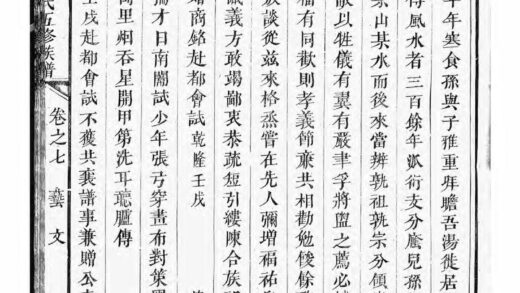 年寒食孫與子雅重拜瞻吾湯徙居
得風水者三百餘年派衍支分兒孫
山某水而後來當辨孰祖孰宗分領
敢以牲儀有裹有嚴聿孚將盥之薦必
福有同歡則孝義節亷共相勸勉俊餘
放談從兹來格烝嘗在先人彌增福祐
誠義方敢竭鄙衷恭疏短引縷陳合族
商銘赴都會試 乾隆壬戌
才日南闈試少年張弓穿畫布對策
里烟吞星開甲第洗耳聽臚傳
壬戌赴都會試不獲共襄譜事兼贈公
氏五修族譜 卷之七 藝文